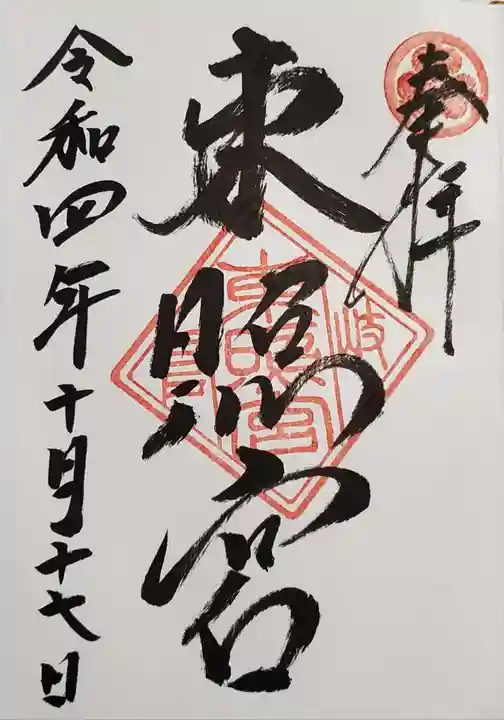 奉拝
東照宮
令和四年十月十七日